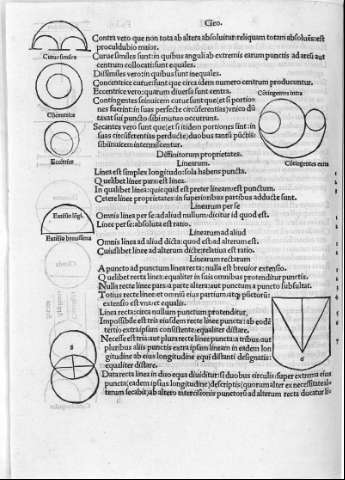 Geo.
Contra vero que non tota ab altera absoluitur: reliquam totam absoluens: est
proculdubio maior.
Curue similes sunt: in quibus anguli ab extremis earum punctis ad arcus aut
centrum collocati sunt equales.
Dissimiles vero: in quibus sunt inequales.
Concentrice curue: sunt que circa idem numero centrum producentur.
Eccentrice vero: quarum diuersa sunt centra.
Contingentes sibiinuicem curue sunt: que si portio
nes fuerint in suas perfecte circumferentias: uno dū
taxat sui puncto sibi mutuo occurrunt.
Secantes vero sunt que: si itidem portiones sunt: in
suas circumferentias perducte: duobus tantū pūctis
sibiinuicem intersecentur.
Diffinitorum proprietates.
Linearum.
Linea est simplex longitudo: sola habens puncta.
Quelibet linee pars: est linea.
In qualibet linea: quicquid est preter lineam: est punctum.
Cetere linee proprietates: in superioribus partibus adducte sunt.
Linearum per se
Omnis linea per se: ad aliud nullum: dicitur id quod est.
Linee per se: absoluta est ratio.
Linearum ad aliud
Omnis linea ad aliud dicta: quod est: ad alterum est.
Cuiuslibet linee ad alterum dicte: relatiua est ratio.
Linearum rectarum
A puncto ad punctum linea recta: nulla est breuior extensio.
Quelibet recta linea: equaliter in suis omnibus protenditur punctis.
Nulla recte linee pars a parte altera: aut punctum a puncto subsultat.
Totius recte linee: et omnis eius partium atque punctorum
extensio est una: et equalis.
Linea recta: circa nullum punctum protenditur.
Impossibile est tris eiusdem recte linee puncta: ab eodē
tertio extra ipsam consistente: equaliter distare.
Necesse est tria aut plura recte linee puncta: a tribus aut
pluribus aliis punctis extra ipsam lineam in eadem lon
gitudine ab eius longitudine equidistanti designatis:
equaliter distare.
Data recta linea in duo equa diuiditur: si duobus circulis: super extrema eius
puncta: eadem ipsius longitudine: descriptis: quorum alter ex necessitate al-
terum secabit: ab altero intersectionis puncto: ad alterum recta ducatur li-
Curue similes
Cōcentrice
Eccētrice
Contingentes intra
Cōtingentes extra